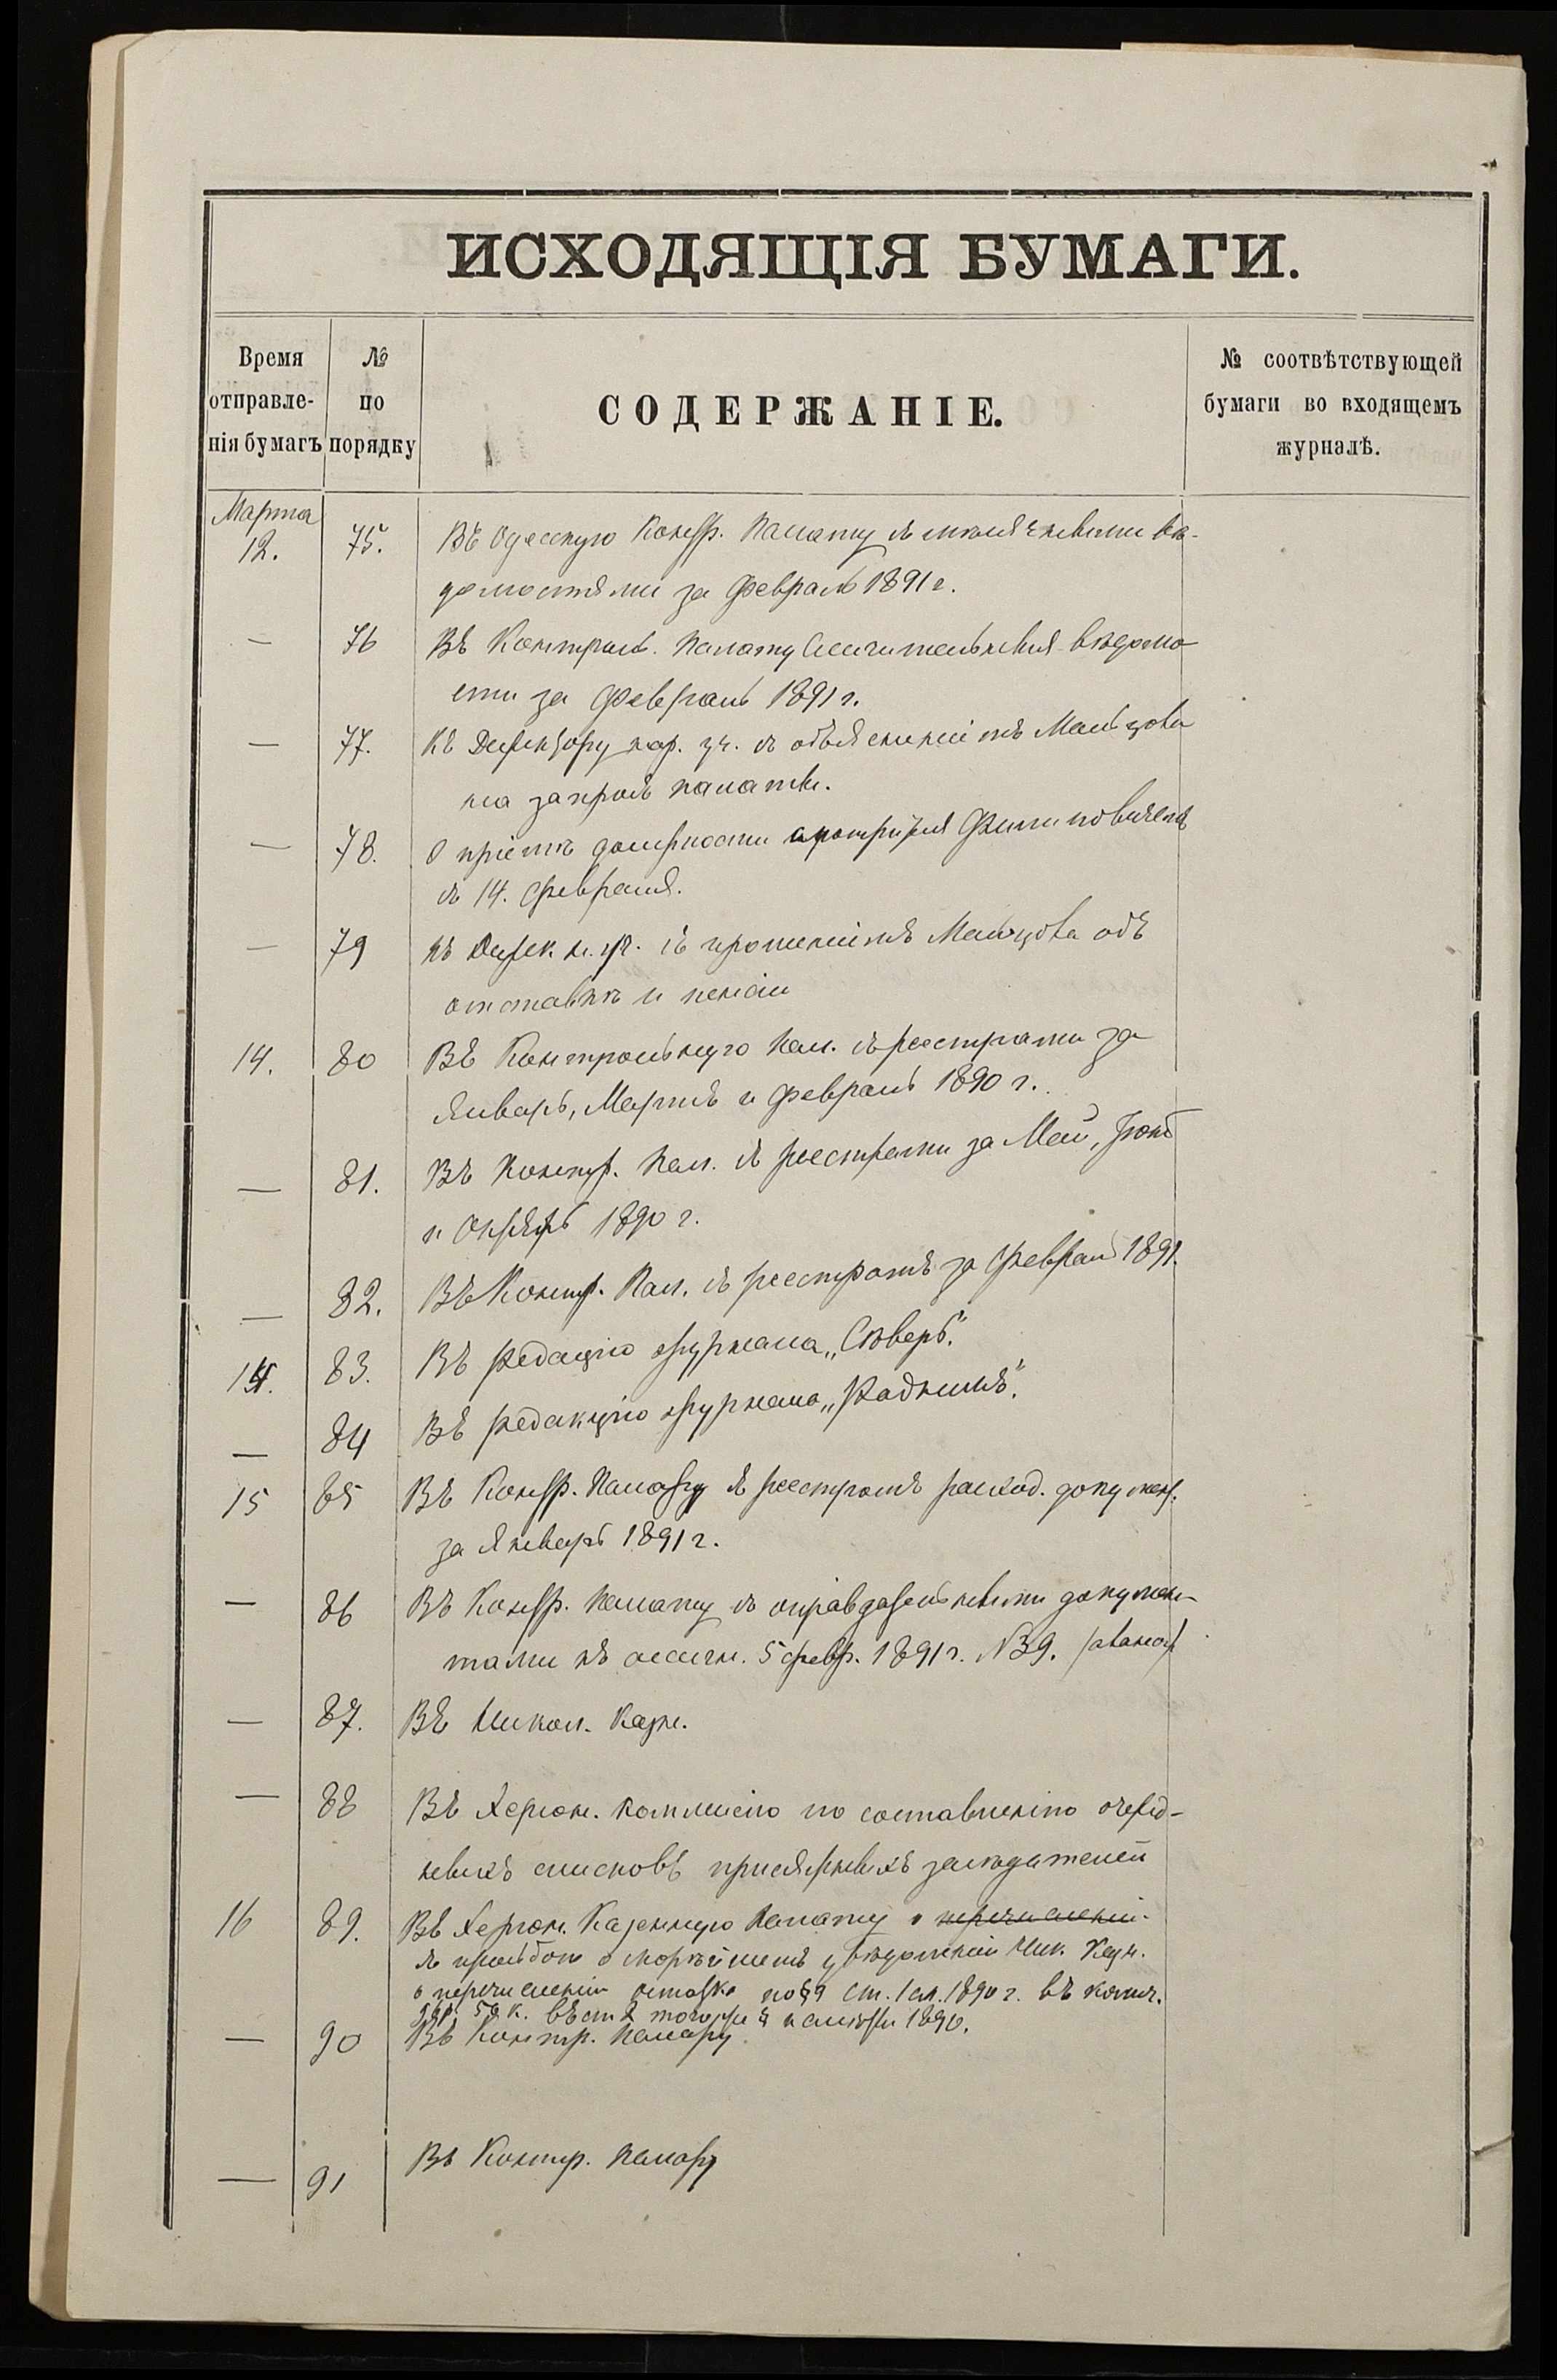 ИСХОДЯЩІЯ БУМАГИ.
Время отправле- нія бумагъ
№ по порядку
СОДЕРЖАНІЕ.
№ соотвѣтствующей бумаги во входящемъ журналѣ.
Марта
12. 75. Въ Одесскую Контр. Палату съ мѣсячными вѣ-
домостями за Февраль 1891 г.
— 76 Въ Контрольн. Палату Ассигнательныя вѣдомо
сти за Февраль 1891 г.
— 77. Къ Директору нар. уч. съ объясненіемъ Мальцова
на запросъ палаты.
— 78. О пріемѣ должности Филиповичемъ
съ 14. Февраля.
— 79 къ Дирек. н. уч. съ прошеніемъ Мальцова объ
отставкѣ и пенсіи
14. 80 Въ Контрольную Пал. съ реестрами за
Январь, Мартъ и Февраль 1890 г.
— 81. Въ Контр. Пал. съ реестрами за Май, Іюнь
и Октябрь 1890 г.
— 82. Въ Контр. Пал. съ реестромъ за Февраль 1891.
14. 83. Въ редацію журнала „Сѣверъ".
— 84 Въ редакцію журнала „Родникъ".
15 85 Въ Контр. Палату съ реестромъ расход. докумен.
за Январь 1891 г.
— 86 Въ Контр. Палату съ оправдательными докумен-
тами къ ассигн. 5 февр. 1891 г. №39. /авансъ/
— 87. Въ Никол. Казн.
— 88 Въ Херсон. коммисію по составленію очеред-
ныхъ списковъ присяжныхъ засѣдателей
16 89. Въ Херсон. Казенную Палату о перечисленіи
съ просьбою о скорѣйшемъ увѣдомленіи Ник. Казн.
о перечисленіи остатка по §9 ст. 1 см. 1890 г. въ колич.
50 к. въ ст. 2 того же § и смѣты 1890.
— 90 Въ Контр. Палату
— 91 Въ Контр. Палату